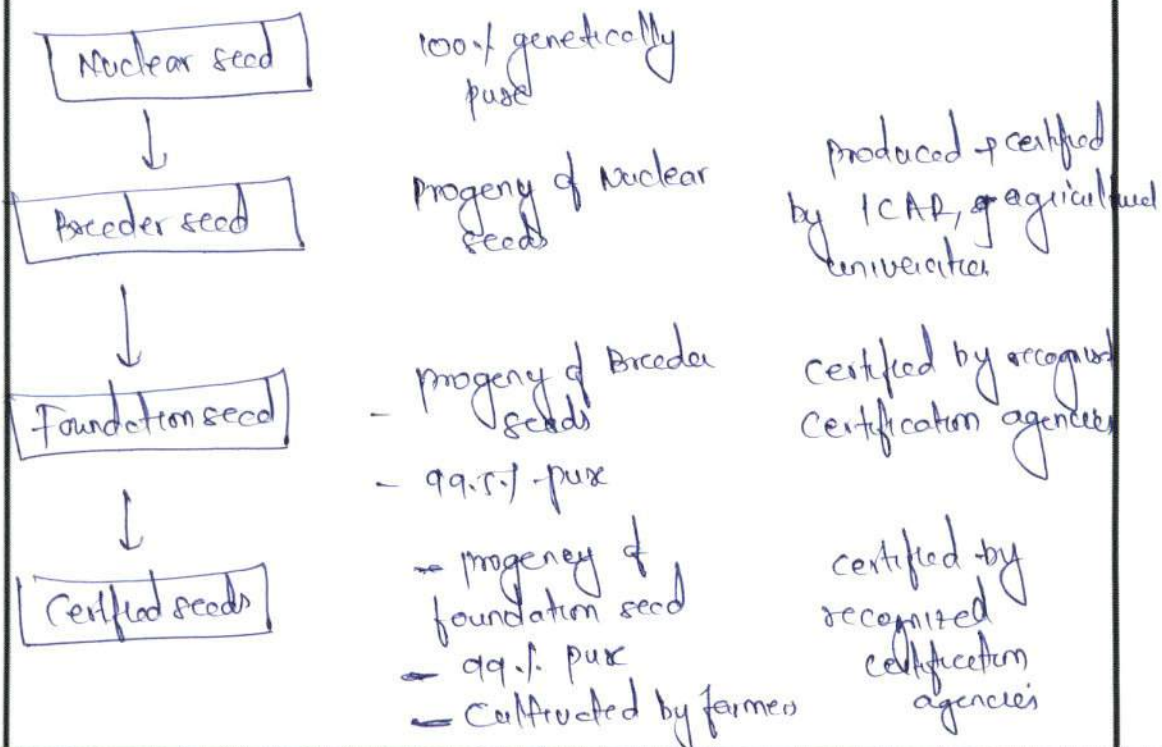 Nuclear seed
100% genetically
pure
Breeder seed
progeny of Nuclear
seeds
produced & certified
by ICAR, agricultural
universities
Foundation seed
- progeny of Breeder
seeds
- 99.5% pure
certified by recognised
certification agencies
Certified seeds
- progeney of
foundation seed
- 99% pure
- Cultivated by farmers
certified by
recognized
certification
agencies